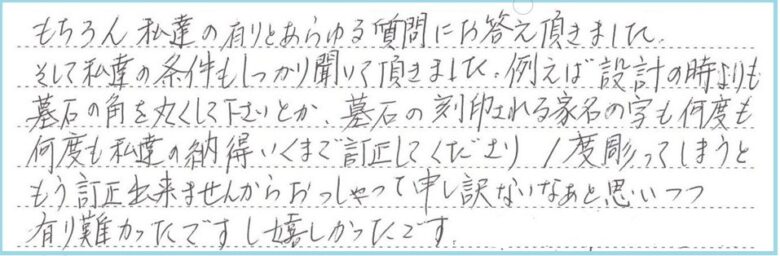 もちろん私達の有りとあらゆる質問にお答え頂きました。
そして私達の条件もしっかり聞いて頂きました。例えば設計の時よりも
墓石の角を丸くして下さいとか、墓石の刻印される家名の字も何度も
何度も私達の納得いくまで訂正してくださり 1度彫ってしまうと
もう訂正出来ませんからおっしゃって申し訳ないなあと思いつつ
有り難かったですし嬉しかったです。